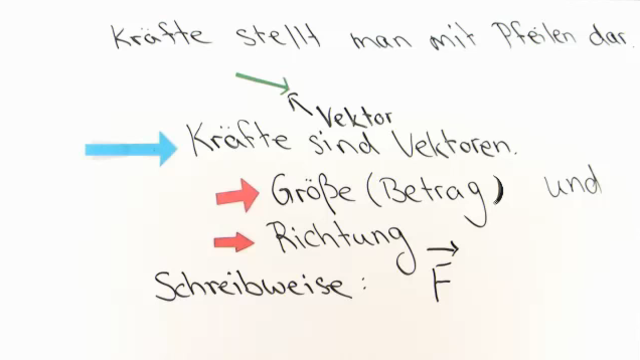 Kräfte stellt man mit Pfeilen dar.
Vektor
Kräfte sind Vektoren.
Größe (Betrag) und
Richtung
Schreibweise: F⃗